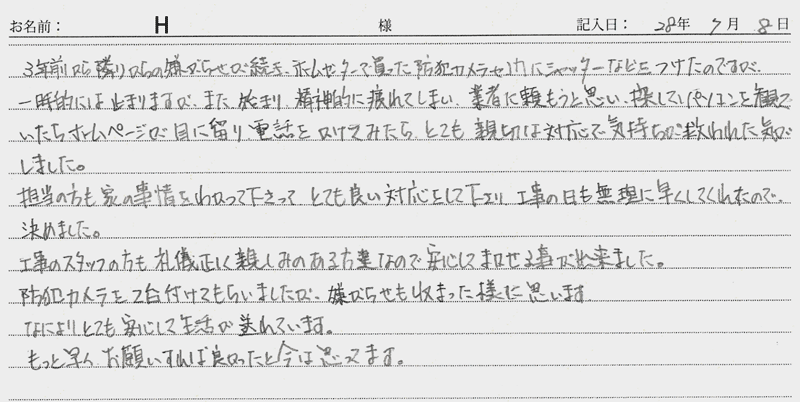 お名前: H 様 記入日: 28年 7月 8日
3年前から隣りからの嫌がらせが続き、ホームセンターで買った防犯カメラセンサー にシャッターなどをつけたのですが、
一時的には止まりますが、また始まり、精神的に疲れてしまい、業者に頼もうと思い、探していパソコンを観て
いたらホームページが目に留り電話をかけてみたら、とても親切な対応で気持ちが救われた気が
しました。
担当の方も家の事情をわかって下さって とても良い対応をして下さり 工事の日も無理に早くしてくれたので、
決めました。
工事のスタッフの方も礼儀正しく親しみのある方達なので安心してまかせる事が出来ました。
防犯カメラを2台付けてもらいましたが、嫌がらせも収まった様に思います
なによりとても安心して生活が送れています。
もっと早く お願いすれば良かったと今は思ってます。